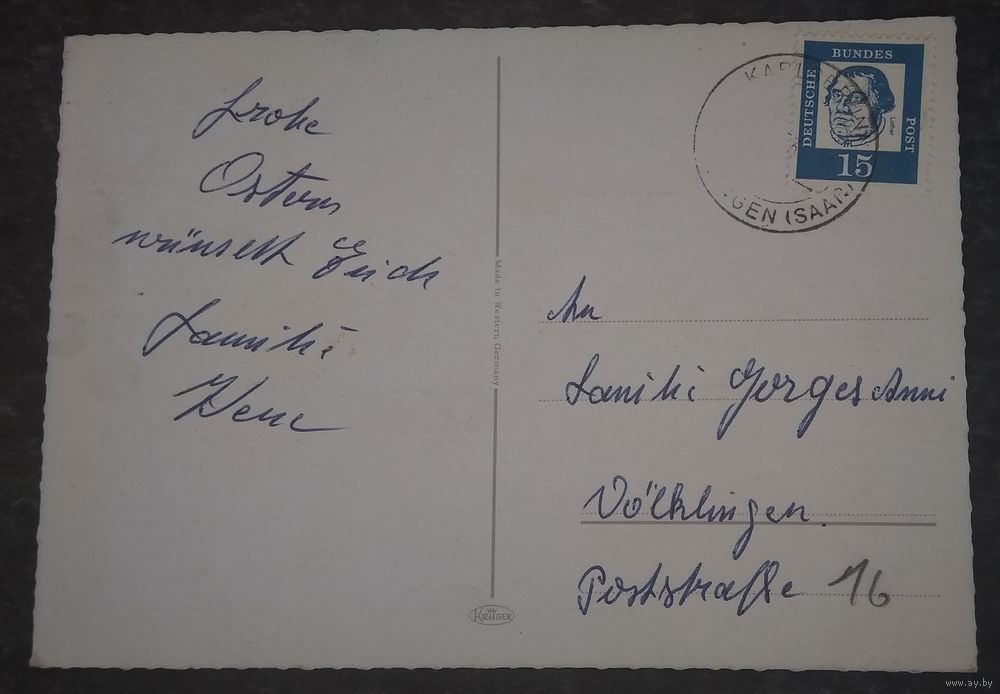 Frohe
Ostern
wünscht Euch
Familie
DEUTSCHE
BUNDES
POST
Luther
15
GEN (SAAR)
Made in Western Germany
KRÜGER
An
Familie Gorges Anni
Völklingen
Poststraße 16
www.ay.by